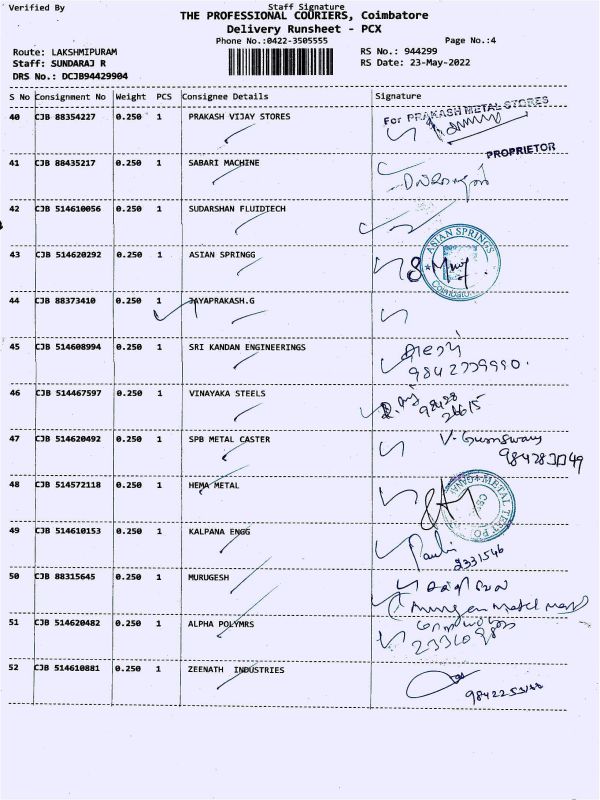 Verified By Staff Signature
THE PROFESSIONAL COURIERS, Coimbatore
Delivery Runsheet - PCX
Phone No.:0422-3505555 Page No.:4
Route: LAKSHMIPURAM RS No.: 944299
Staff: SUNDARAJ R RS Date: 23-May-2022
DRS No.: DCJB94429904
S No Consignment No Weight PCS Consignee Details Signature
40 CJB 88354227 0.250 1 PRAKASH VIJAY STORES For PRAKASH METAL STORES
PROPRIETOR
41 CJB 88435217 0.250 1 SABARI MACHINE
42 CJB 514610056 0.250 1 SUDARSHAN FLUIDTECH
43 CJB 514620292 0.250 1 ASIAN SPRINGG ASIAN SPRINGS
44 CJB 88373410 0.250 1 JAYAPRAKASH.G
45 CJB 514608994 0.250 1 SRI KANDAN ENGINEERINGS
46 CJB 514467597 0.250 1 VINAYAKA STEELS
47 CJB 514620492 0.250 1 SPB METAL CASTER
48 CJB 514572118 0.250 1 HEMA METAL METAL TEST
49 CJB 514610153 0.250 1 KALPANA ENGG 2331546
50 CJB 88315645 0.250 1 MURUGESH
51 CJB 514620482 0.250 1 ALPHA POLYMRS
52 CJB 514610881 0.250 1 ZEENATH INDUSTRIES